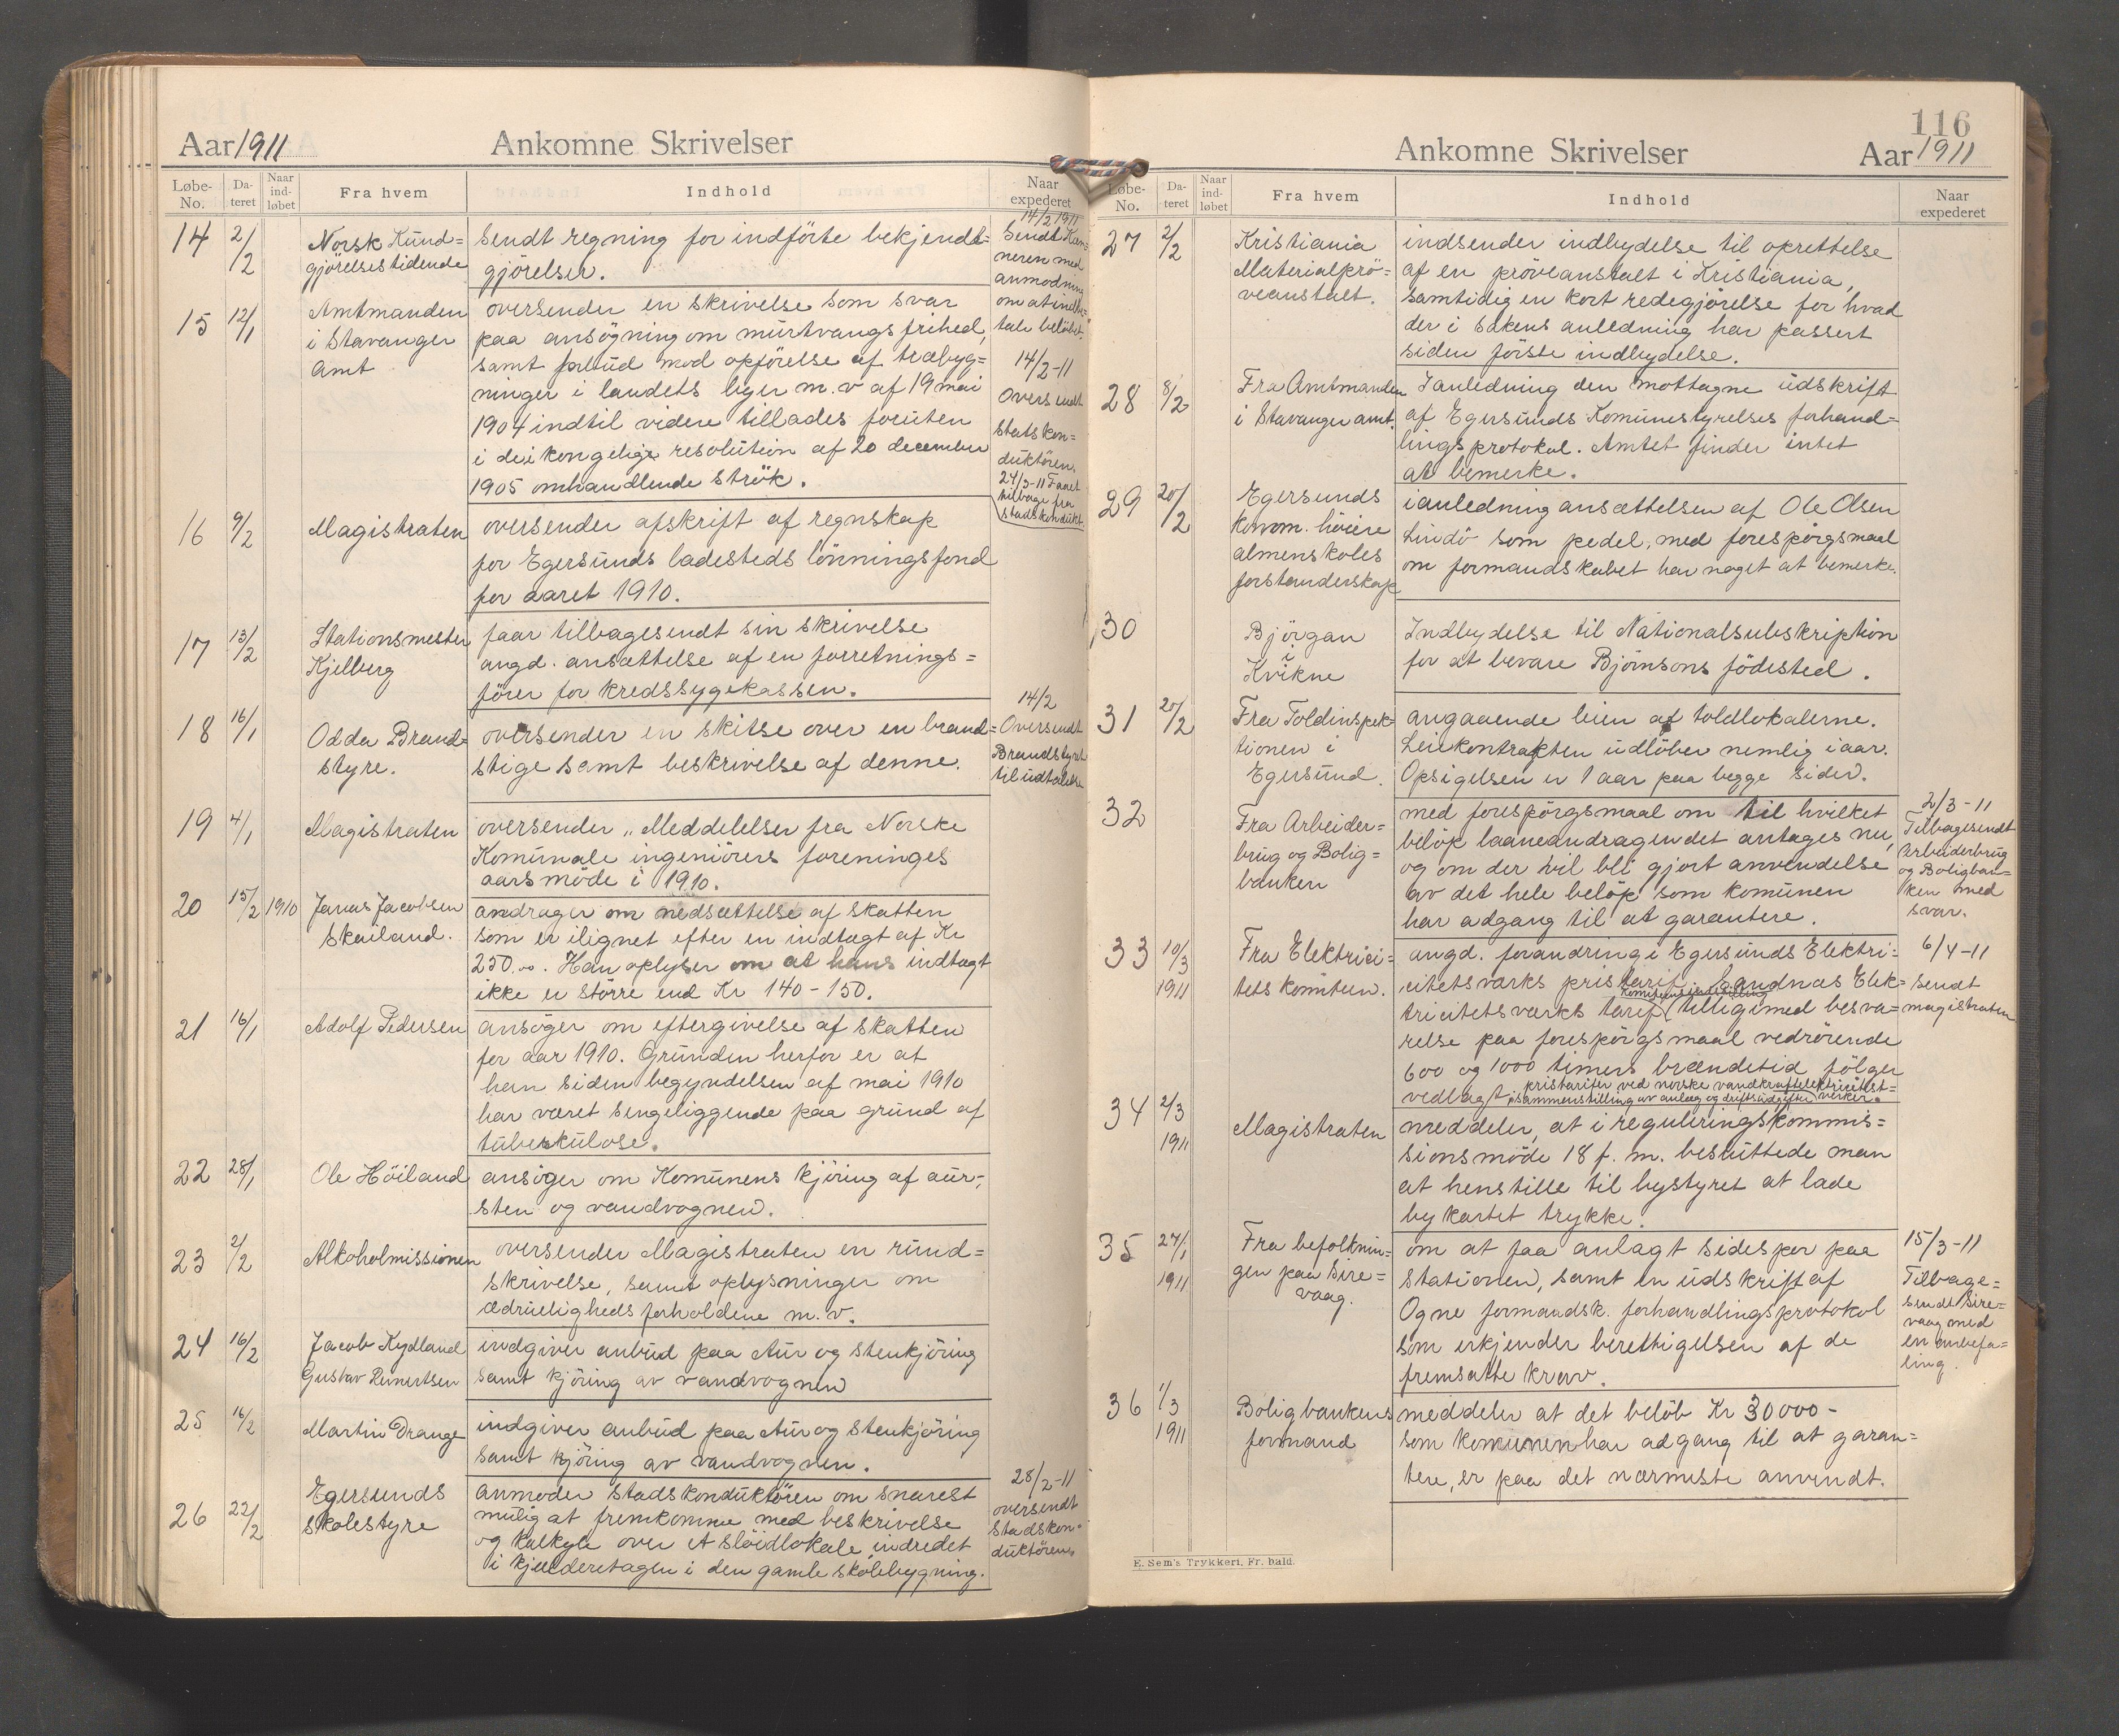 Aar 1911
Ankomne Skrivelser
Løbe-No.
Da-teret
Naar ind-løbet
Fra hvem
Indhold
Naar expederet
14
2/2
Norsk Kund=
gjörelsestidende
Sendt regning for indförte bekjendt=
gjörelser.
14/2 1911
Sendt Kæm=
neren med
anmodning
om at indbe=
tale beløbet.
15
12/1
Amtmanden
i Stavanger
Amt
oversender en skrivelse som svar
paa ansögning om murtvangsfrihed,
samt forbud mod opförelse af træbyg=
ninger i landets byer m.v af 19 mai
1904 indtil videre tillades foruten
i de i kongelige resolution af 20 december
1905 omhandlende strök.
14/2-11
Oversendt
statskon=
duktören.
24/3-11 Faaet
tilbage fra
stadskondukt.
16
9/2
Magistraten
oversender afskrift af regnskap
for Egersunds ladesteds lönningsfond
for aaret 1910.
17
13/2
Stationsmester
Kjelberg
faar tilbagesendt sin skrivelse
angd. ansættelse af en forretnings=
förer for kredssygekassen.
18
16/1
Odda Brand=
styre.
oversender en skitse over en brand=
stige samt beskrivelse af denne.
14/2
Oversendt
Brandstyret
til udtalelse
19
4/1
Magistraten
oversender „Meddelelser fra Norske
Komunale ingeniörers foreninges
aarsmöde i 1910.
20
15/2
1910
Jonas Jacobsen
Skailand.
andrager om nedsættelse af skatten
som er ilignet efter en indtægt af Kr
250.00. Han oplyser om at hans indtægt
ikke er större end Kr 140-150.
21
16/1
Adolf Pedersen
ansöger om eftergivelse af skatten
for aar 1910. Grunden herfor er at
han siden begyndelsen af mai 1910
har været sengeliggende paa grund af
tuberkulose.
22
28/1
Ole Höiland
ansöger om Komunens kjöring af aur=,
sten og vandvognen.
23
2/2
Alkoholmissionen
oversender Magistraten en rund=
skrivelse, samt oplysninger om
ædrueligheds forholdene m.v.
24
16/2
Jacob Kydland
Gustav Reinertsen
indgiver anbud paa Aur og stenkjöring
samt kjöring av vandvognen
25
16/2
Martin Drange
indgiver anbud paa Aur og stenkjöring
samt kjöring av vandvognen.
26
22/2
Egersunds
skolestyre
anmoder stadskonduktören om snarest
mulig at fremkomme med beskrivelse
og kalkyle over et slöidlokale indredet
i kjælderetagen i den gamle skolebygning.
28/2-11
oversendt
stadskon=
duktören
116
Ankomne Skrivelser
Aar 1911
Løbe-No.
Da-teret
Naar ind-løbet
Fra hvem
Indhold
Naar expederet
27
2/2
Kristiania
Materialprö=
veanstalt.
indsender indbydelse til oprettelse
af en pröveanstalt i Kristiania,
samtidig en kort redegjörelse for hvad
der i sakens anledning har passert
siden förste indbydelse.
28
8/2
Fra Amtmanden
i Stavanger amt.
I anledning den mottagne udskrift
af Egersunds Komunestyrelses forhand=
lingsprotokol. Amtet finder intet
at bemerke.
29
20/2
Egersunds
komm. höiere
almenskoles
forstanderskap
i anledning ansættelsen af Ole Olsen
Lindö som pedel, med forespörgsmaal
om formandskabet har noget at bemerke.
30
Björgan
i
Kvikne
Indbydelse til Nationalsubskription
for at bevare Björnsons födested.
31
20/2
Fra Toldinspek=
tionen i
Egersund.
angaaende leien af toldlokalerne.
Leiekontrakten udlöber nemlig i aar.
Opsigelsen er 1 aar paa begge sider.
32
Fra Arbeider=
brug og Bolig=
banken
med forespörgsmaal om til hvilket
belöp laaneandragendet antages nu,
og om der vil bli gjort anvendelse
av det hele belöp som komunen
har adgang til at garantere.
2/3-11
Tilbagesendt
Arbeiderbrug
og Boligban=
ken med
svar.
33
10/3
1911
Fra Elektrici=
tets komiteen.
angd. forandring i Egersunds Elektri=
citetsværks pristarif. Sandnæs Elek=
Komiteens indstilling
tricitetsværks tarif, tilligemed besva=
relse paa forespörgsmaal vedrörende
600 og 1000 timers brændetid fölger
pristarifer ved norske vandkraftelektricitest=
vedlagt, i sammenstilling av anlæg og driftsudgifter verker.
6/4-11
Sendt
magistraten
34
2/3
1911
Magistraten
meddeler, at i reguleringskommis=
sionsmöde 18 f. m. besluttede man
at henstille til bystyret at lade
bykartet trykke.
35
27/1
1911
Fra befolknin=
gen paa Sire=
vaag.
om at faa anlagt sidespor paa
stationen, samt en udskrift af
Ogne formandsk. forhandlingsprotokol
som erkjender berettigelsen af de
fremsatte krav.
15/3-11
Tilbage=
sendt Sire=
vaag med
en anbefa=
ling.
36
1/3
1911
Boligbankens
formand
meddeler at det belöb Kr 30000-
som komunen har adgang til at garan=
tere, er paa det nærmeste anvendt.
E. Sem's Trykkeri, Fr. hald.